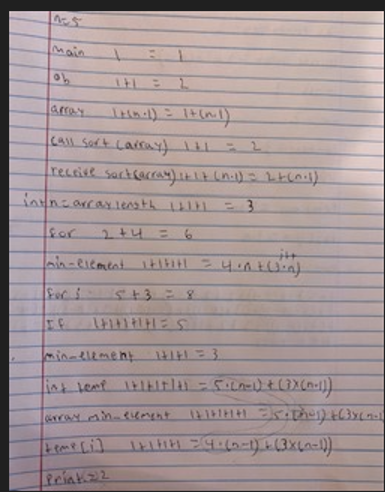 n=5
main 1 = 1
ob 1+1 = 2
array 1+(n-1) = 1+(n-1)
call sort (array) 1+1 = 2
receive sort(array) 1+1+(n-1) = 2+(n-1)
int n = array length 1+1+1 = 3
for 2+4 = 6
j++
min-element 1+1+1+1 = 4·n+(3·n)
for j 5+3 = 8
If 1+1+1+1+1 = 5
min-element 1+1+1 = 3
int temp 1+1+1+1+1 = 5·(n-1)+(3×(n-1))
array min-element 1+1+1+1+1 = 5·(n-1)+(3×(n-1)
temp[i] 1+1+1+1 = (4·(n-1)+(3×(n-1))
print = 2